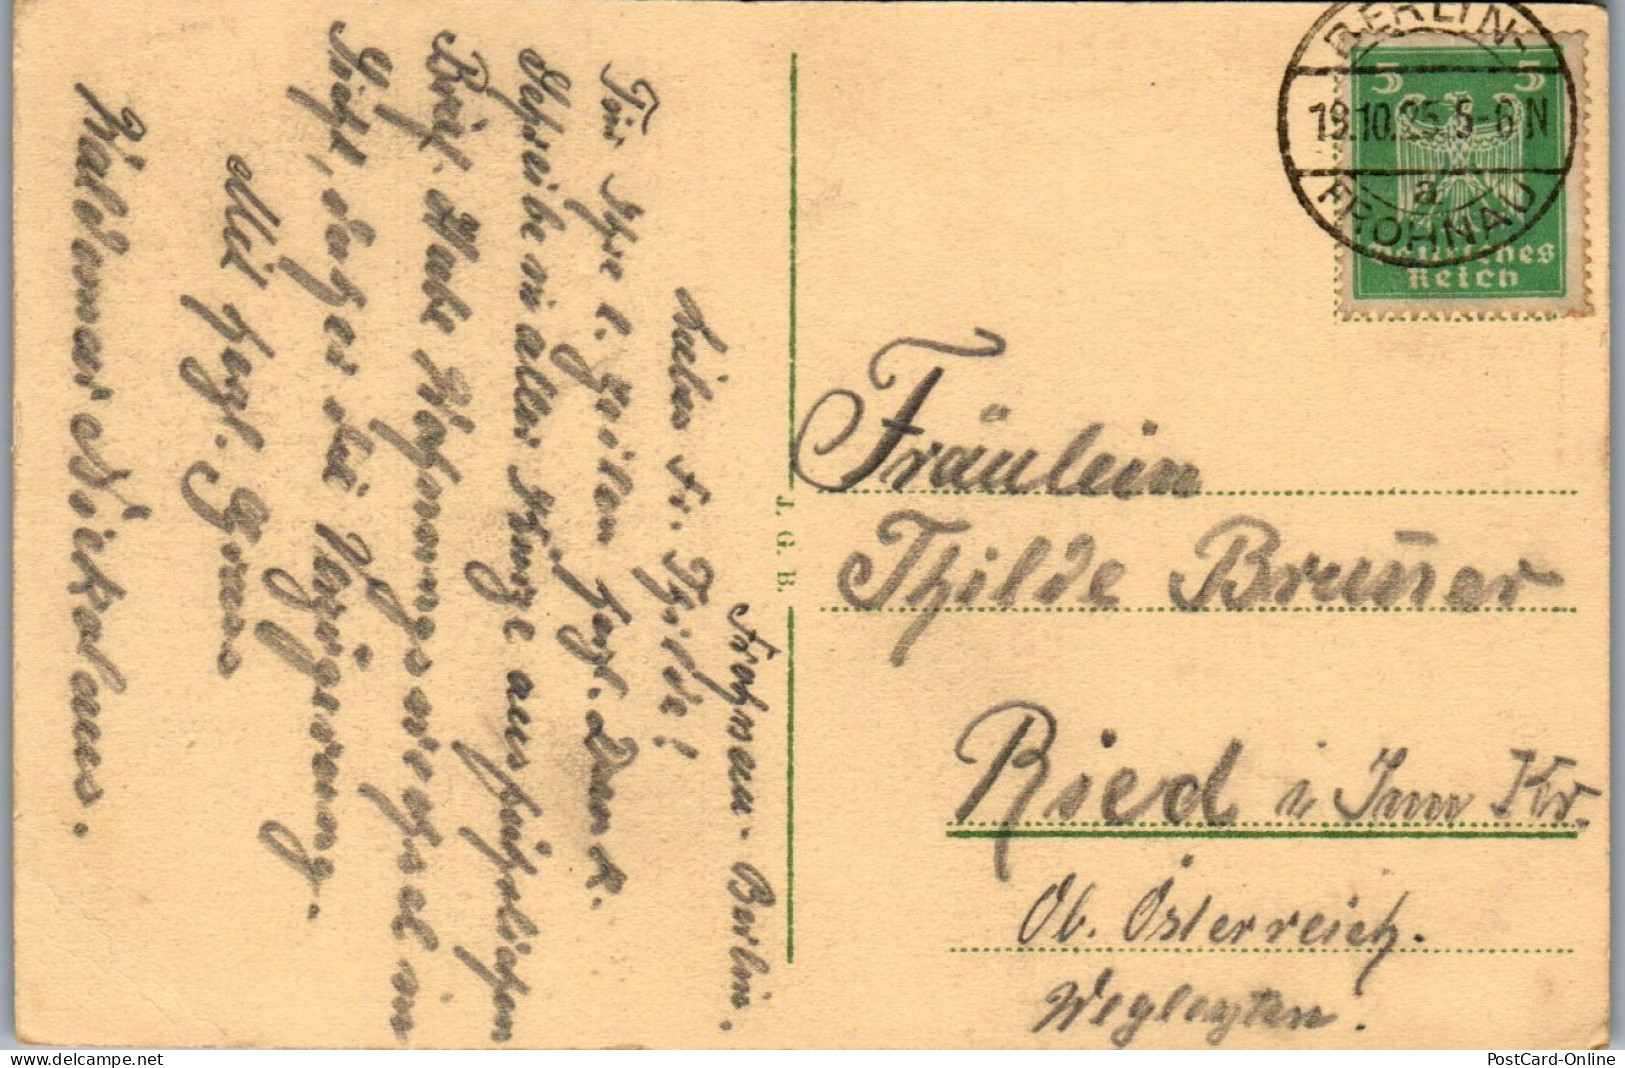 Frohnau-Berlin.
Liebes Fr. Thilde!
Für Ihre l. Zeilen herzl. Dank.
Schreibe in aller Kürze ausführlichen
Brief. Habe Wohnungswechsel in
Sicht, daher die Verzögerung.
Mit herzl. Gruss
Waldemar Nickolaus.
J. G. B.
BERLIN-
19.10.25. 5-6 N
a
FROHNAU
5 5
Deutsches
Reich
Fräulein
Thilde Bruner
Ried i Inn Kr.
Ob. Österreich.
Wegleyten.
PostCard-Online